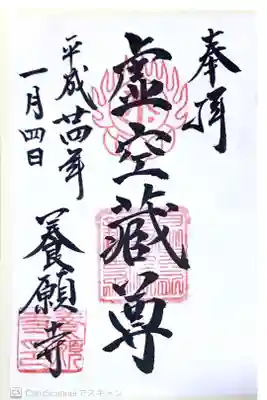 奉拝
虚空蔵尊
平成廿四年
一月四日
養願寺
CamScannerでスキャン